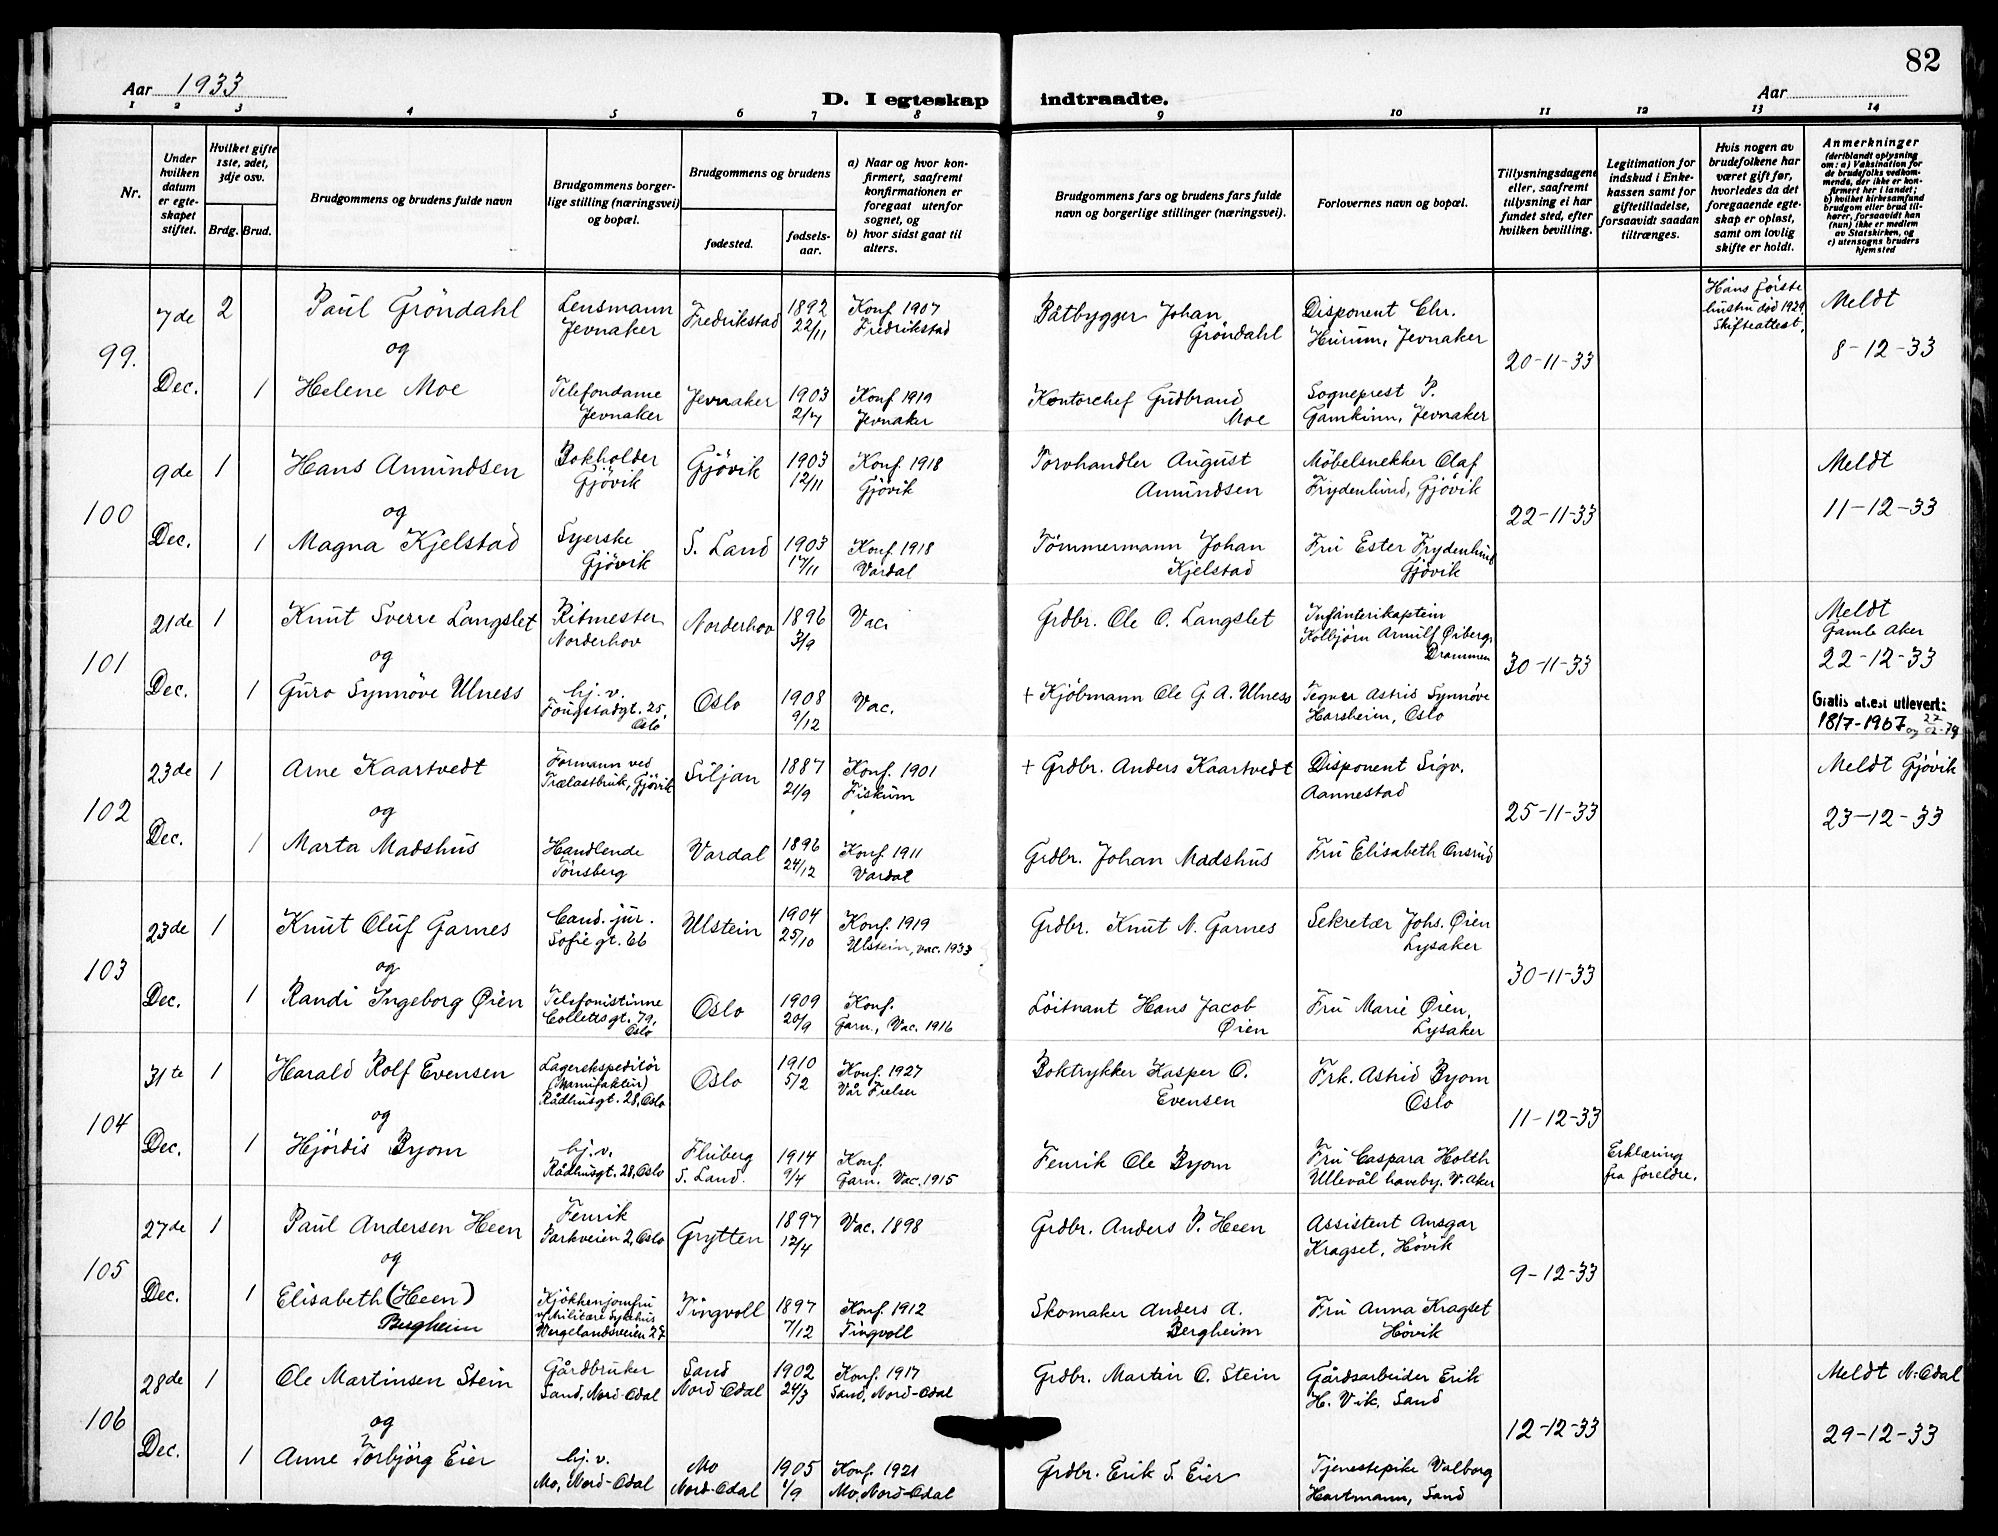 82
Aar 1933
Aar
D. I egteskap indtraadte.
1 2 3 4 5 6 7 8 9 10 11 12 13 14
Nr.
Under
hvilken
datum
er egte-
skapet
stiftet.
Hvilket gifte
1ste, 2det,
3dje osv.
Brdg. Brud.
Brudgommens og brudens fulde navn
Brudgommens borger-
lige stilling (næringsvei)
og bopæl.
Brudgommens og brudens
fødested.
fødsels-
aar.
a) Naar og hvor kon-
firmert, saafremt
konfirmationen er
foregaat utenfor
sognet, og
b) hvor sidst gaat til
alters.
Brudgommens fars og brudens fars fulde
navn og borgerlige stillinger (næringsvei).
Forlovernes navn og bopæl.
Tillysningsdagene
eller, saafremt
tillysning ei har
fundet sted, efter
hvilken bevilling.
Legitimation for
indskud i Enke-
kassen samt for
giftetilladelse,
forsaavidt saadan
tiltrænges.
Hvis nogen av
brudefolkene har
været gift før,
hvorledes da det
foregaaende egte-
skap er opløst,
samt om lovlig
skifte er holdt.
Anmerkninger
(deriblandt oplysning
om: a) Vaksination for
de brudefolks vedkom-
mende, der ikke er kon-
firmert her i landet;
b) hvilket kirkesamfund
brudgom eller brud til-
hører, forsaavidt han
(hun) ikke er medlem
av Statskirken, og
c) utensogns bruders
hjemsted
99.
7de
Dec.
2
Paul Gröndahl
og
Lensmann
Jevnaker
Fredrikstad
1892
22/11
Konf 1907
Fredrikstad
Båtbygger Johan
Gröndahl
Disponent Chr.
Hurum, Jevnaker
20-11-33
Hans første
hustru død 1929
Skifteattest.
Meldt
8-12-33
1
Helene Moe
Telefondame
Jevnaker
Jevnaker
1903
2/7
Konf 1919
Jevnaker
Kontorchef Gudbrand
Moe
Sogneprest P.
Gamkinn, Jevnaker
100
9de
Dec.
1
Hans Amundsen
og
Bokholder
Gjövik
Gjövik
1903
12/11
Konf. 1918
Gjövik
Torvhandler August
Amundsen
Möbelsnekker Olaf
Frydenlund, Gjövik
22-11-33
Meldt
11-12-33
1
Magna Kjelstad
Syerske
Gjövik
S. Land
1903
17/11
Konf. 1918
Vardal
Tömmermann Johan
Kjelstad
Fru Ester Frydenlund
Gjövik
101
21de
Dec.
1
Knut Sverre Langslet
og
Ritmester
Norderhov
Norderhov
1896
3/9
Vac.
Grdbr. Ole O. Langslet
Infanterikaptein
Kolbjörn Arnulf Öiberg,
Drammen
30-11-33
Meldt
Gamle Aker
22-12-33
1
Guro Synnöve Ulness
hj. v.
Fougstadgt. 25,
Oslo
Oslo
1908
9/12
Vac.
+ Kjöbmann Ole G A. Ulness
Tegner Astrid Synnöve
Harsheim, Oslo
Gratis attest utlevert:
18/7-1967 og
102
23de
Dec.
1
Arne Kaartvedt
og
Formann ved
Trælastbruk, Gjövik
Siljan
1887
21/9
Konf. 1901
Fiskum
+ Grdbr. Anders Kaartvedt
Disponent Sigv.
Aannestad
25-11-33
Meldt Gjövik
23-12-33
1
Marta Madshus
Handlende
Tönsberg
Vardal
1896
24/12
Konf. 1911
Vardal
Grdbr. Johan Madshus
Fru Elisabeth Onsrud
103
23de
Dec.
1
Knut Oluf Garnes
og
Cand. jur.
Sofie gt. 66
Ulstein
1904
25/10
Konf. 1919
Ulstein, vac. 1933
Grdbr. Knut N. Garnes
Sekretær Johs. Øien
Lysaker
30-11-33
1
Randi Ingeborg Øien
Telefonistinne
Collettsgt. 79,
Oslo
Oslo
1909
20/9
Konf.
Garn., Vac. 1916
Löitnant Hans Jacob
Øien
Fru Marie Øien,
Lysaker
104
31te
Dec.
1
Harald Rolf Evensen
og
Lagerekspeditör
(Manufaktur)
Rådhusgt. 28, Oslo
Oslo
1910
5/2
Konf. 1927
Vår Frelser
Boktrykker Kasper O.
Evensen
Frk. Astrid Byom
Oslo
11-12-33
1
Hjördis Byom
hj. v.
Rådhusgt. 28, Oslo
Fluberg
S. Land.
1914
9/4
Konf.
Garn. Vac. 1915
Fenrik Ole Byom
Fru Caspara Holth
Ullevål haveby. V. Aker
Erklæring
fra foreldre.
105
27de
Dec.
1
Paul Andersen Heen
og
Fenrik
Parkveien 2, Oslo
Grytten
1897
12/4
Vac. 1898
Grdbr. Anders P. Heen
Assistent Ansgar
Kragset, Hövik
9-12-33
1
Elisabeth (Heen)
Bergheim
Kjökkenjomfru
v/ Militære sykehus
Wergelandsveien 27
Tingvoll
1897
7/12
Konf. 1912
Tingvoll
Skomaker Anders A.
Bergheim
Fru Anna Kragset
Hövik
106
28de
Dec.
1
Ole Martinsen Stein
og
Gårdbruker
Sand, Nord-Odal
Sand
Nord-Odal
1902
24/3
Konf. 1917
Sand, Nord-Odal
Grdbr. Martin O. Stein
Gårdsarbeider Erik
H. Vik, Sand
12-12-33
Meldt N. Odal
29-12-33
1
Anne Torbjörg Eier
hj. v.
Mo, Nord-Odal
Mo
Nord-Odal
1905
1/9
Konf. 1921
Mo, Nord-Odal
Grdbr. Erik S. Eier
Tjenestepike Valborg
Hartmann, Sand